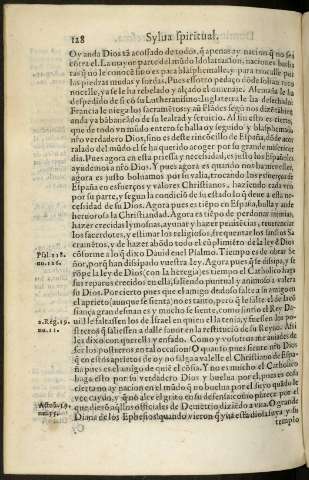 128 Sylua spiritual.
Oy anda Dios tã acossado de todos, q̃ apenas ay nacion q̃ no sea
cõtra el. La mayor parte del mũdo Idolatra son, naciones
q̃ no le conocẽ sino es para blasphemalle, y para
las piedras mudas y sordas. Pues essotro pedaço dõde soliã
ya se le ha rebelado y alçado el omenaje. Alemaña le ha
despedido de si cõ su Lutheranismo: Inglaterra le ha desechado:
Francia le niega los sacramẽtos: y aũ Flãdes segũ nos dizẽ
anda de su lealtad y seruicio. Al fin esto es cierto,
que de todo vn mũdo entero se halla oy seguido y blasphemado
nr̃o verdadero Dios, sino es deste rincõcillo de España, dõde
del mũdo se ha querido acoger por su grande misericor
dia. Pues agora en esta priessa y necesidad, es justo los Españoles
ayudemos a nr̃o Dios. Y pues agora es quando nos ha menester,
agora es justo boluamos por su valia, trocando los esfuerços de
España en esfuerços y valores Christianos, haziendo cada vno
por su parte, y segun la condiciõ de su estado lo q̃ deue a esta ne-
cesidad de su Dios. Agora pues es tiẽpo en España, bulla y ande
heruorosa la Christiandad. Agora es tiẽpo de perdonar injurias,
hazer crecidas lymosnas, ayunar y hazer penitẽcias, reuerenciar
los sacerdotes, y estimar los religiosos, frequentar los sanctos Sa
cramẽtos, y de hazer abõdo todo el cũplimiẽto de la ley de Dios
cõforme a lo q̃ dixo Dauid en el Psalmo. Tiempo es de obrar Se
ñor, porq̃ han dissipado vuestra ley. Agora pues q̃ se dissipa, y se
rõpe la ley de Dios (con la heregia) es tiempo el Catholico haga
sus reparos crecidos en ella, saliendo puntual y animoso a valer a
su Dios. Por cierto pues que el amigo dedoso falta a su amigo en
el aprieto (aunque se sienta) no es tanto, pero q̃ le falte el de
fiança gran desman es y mucho se siente, como sintio el Rey Da-
uid le faltassen los de Israel en quien el la tenia, y fuessen los po-
streros q̃ saliessen a dalle fauor en la restituciõ de su Reyno. Assi
les dixo con querella y enfado. Como y vosotros me auiades de
ser los postreros en tal ocasion? O quanto pues siente nr̃o Dios
q̃ en estos aprietos de oy no salga a valelle el Christiano de Espa-
ña pues es el amigo de quiẽ el cõfia. Y no es mucho el Catholico
haga esto por su verdadero Dios y buelua por el, pues es cosa
cierta no ay nacion en el mũdo q̃ no buelua por el suyo quãdo le
vee caydo, y q̃ nõ alce el grito en su defensa: como parece por el
que dierõ aq̃llos officiales de Demetrio diziẽdo a voz. O grande
Diana de los Ephesios quando vieron q̃ yua esta diosa suya y su
templo
Psal. 118.
nu. 126.
2. Reg. 19.
nu. 11.
Actoru. 19.